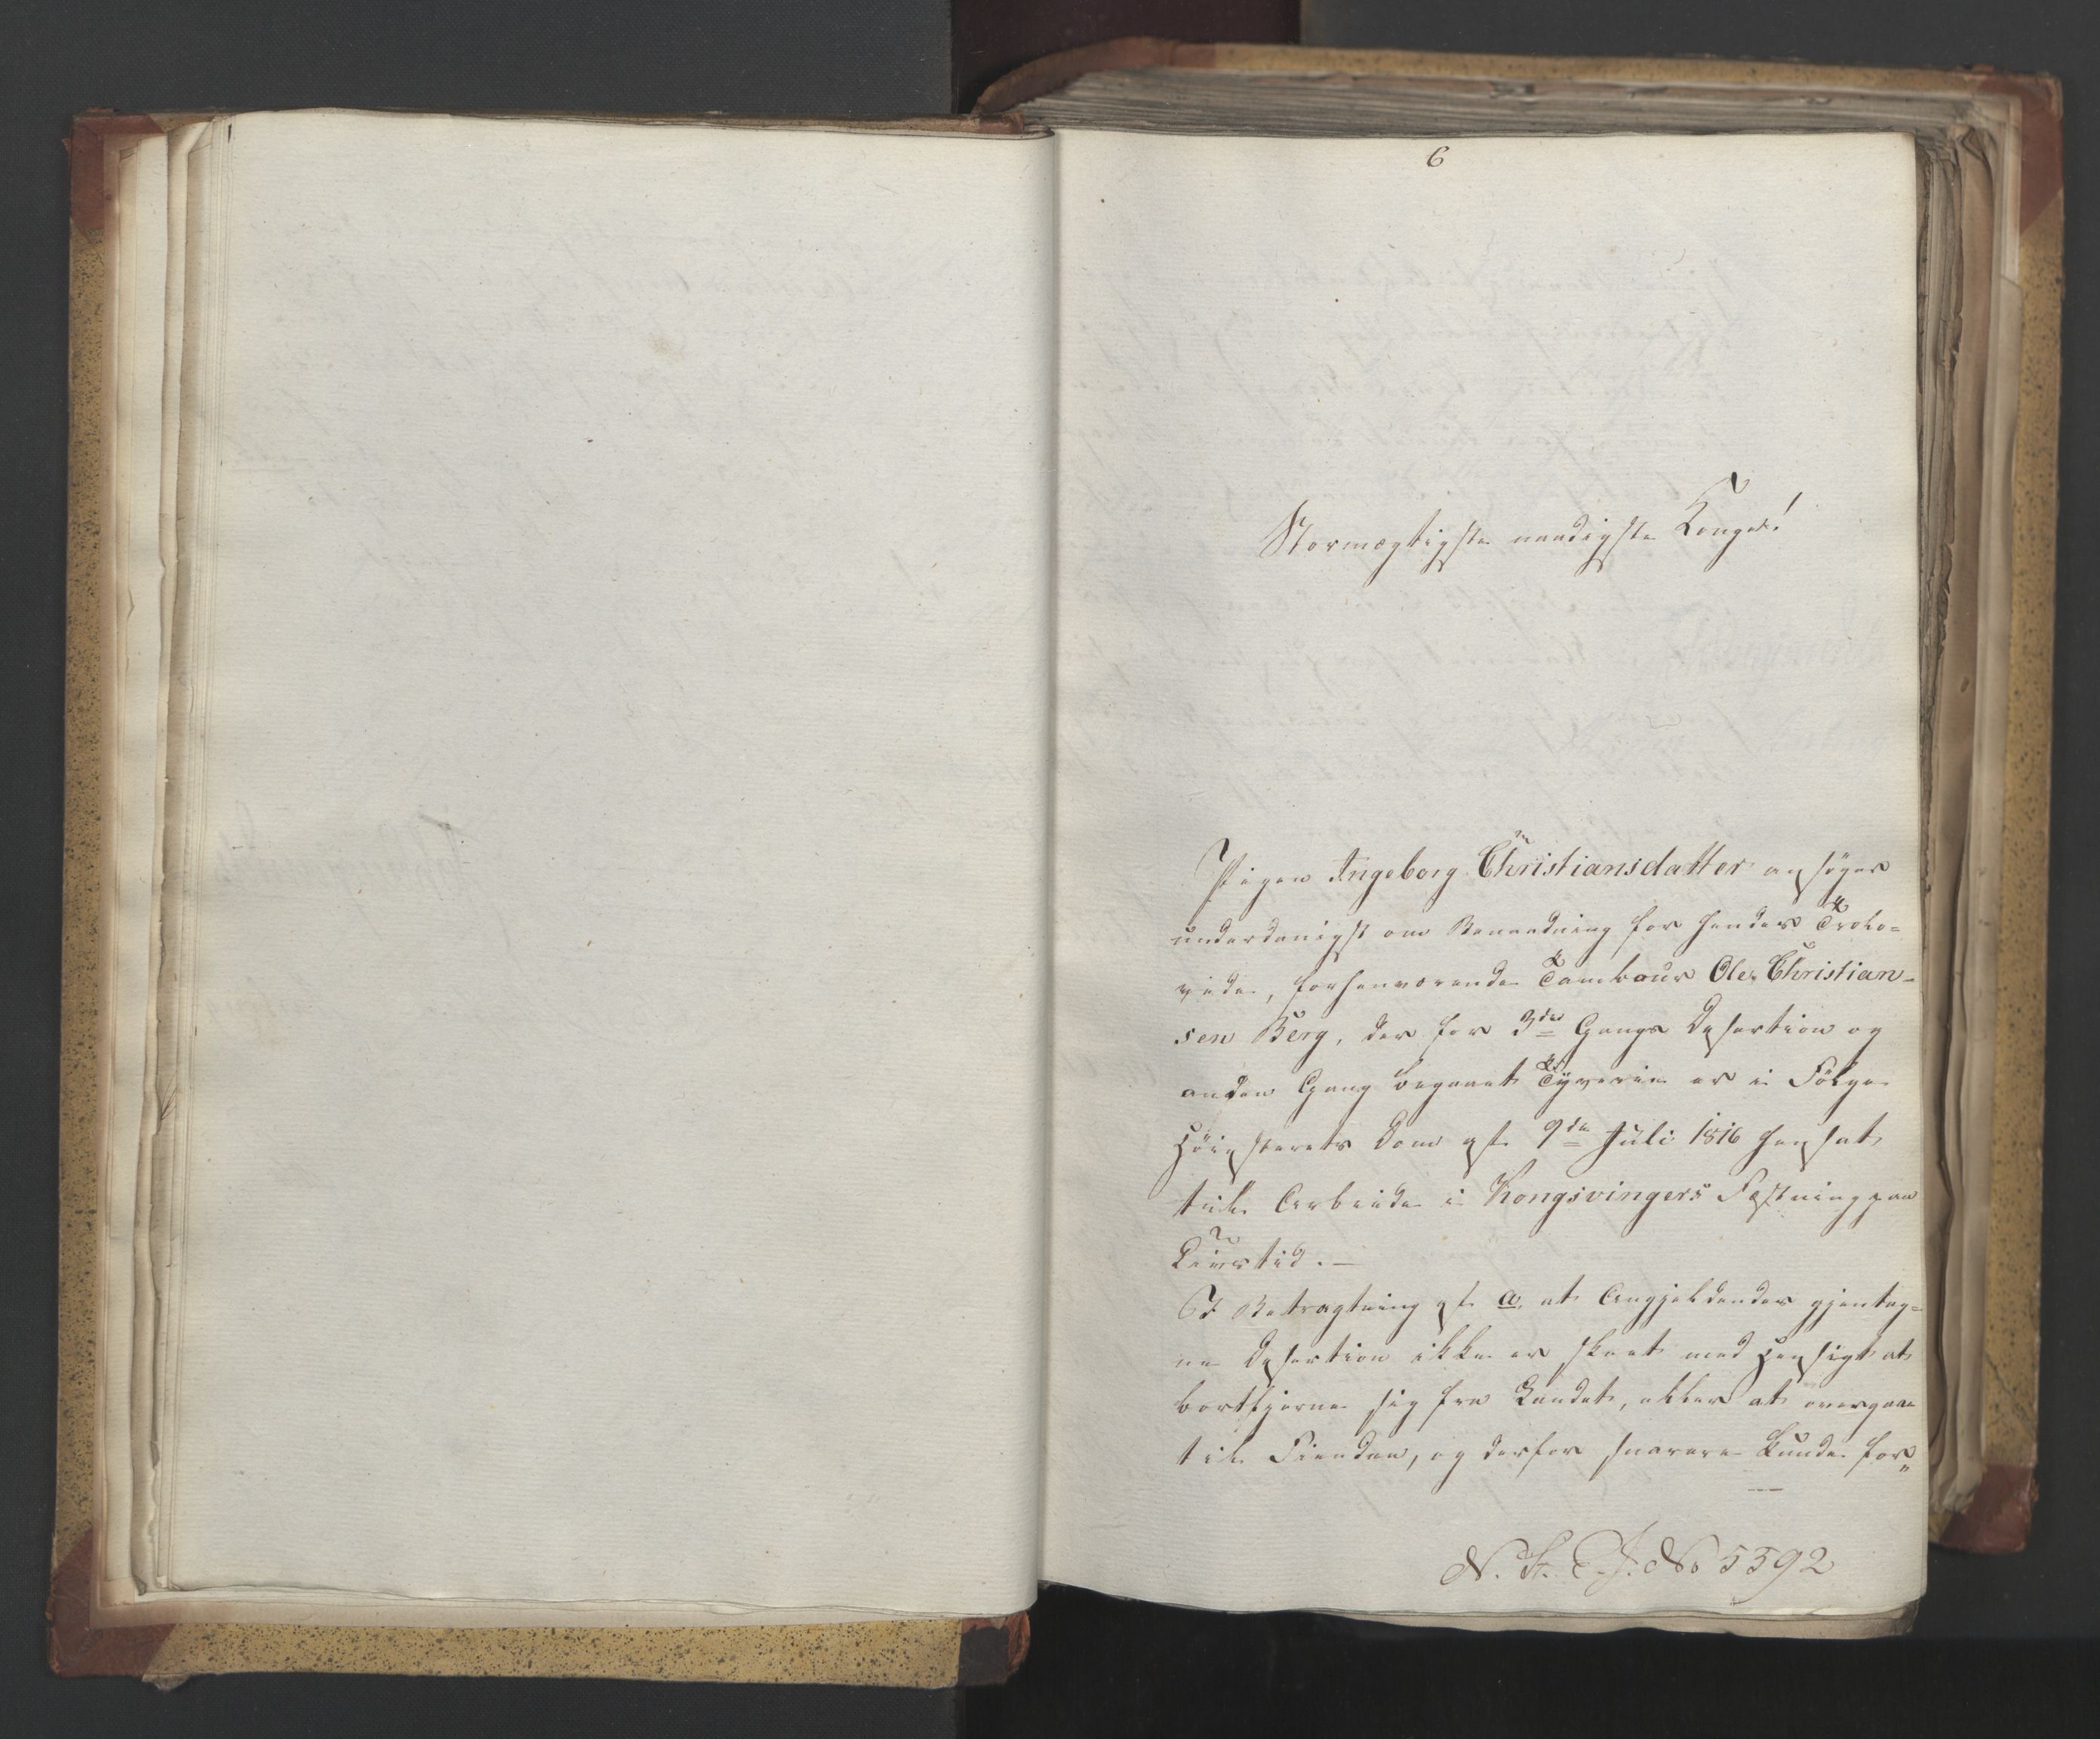 6
Stormægtigste naadigste Konge!
Pigen Ingeborg Christiansdatter ansøger
underdanigst om Benaadning for hendes Trolo=
vede, forhenværende Tambour Ole Christian-
sen Berg, der for 3die Gangs Desertion og
anden Gang begaaet Tyverie er i Følge
Höiesterets Dom af 9de Juli 1816 hensat
til Arbeide i Kongsvingers Fæstning paa
Livstid. —
I Betragtning af a, at Angjeldendes gjentag=
ne Desertion ikke er skeet med Hensigt at
bortfjerne sig fra Landet, eller at overgaae
til Fienden, og derfor snarere kunde for„
N. St. E. J. No 5592